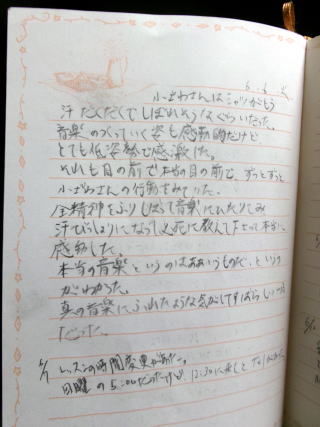 6.6 火
小ざわさんはシャツがもう
汗だくだくでしぼれそうなぐらいだった。
音楽のつくっていく姿も感動的だけど
とても低姿勢で感激した。
それも目の前で本当の目の前で、ずっとずっと
小ざわさんの行動をみていた。
全精神をふりしぼって音楽にひたりこみ
汗びっしょりになって必死に教えて下さって本当に
感動した。
本当の音楽というのはああいうものだ、というの
がわかった。
真の音楽にふれたような気がしてすばらしい一日
だった。
6/7 レッスンの時間変更があった。
日曜の5:00だったけど、12:30に来てと